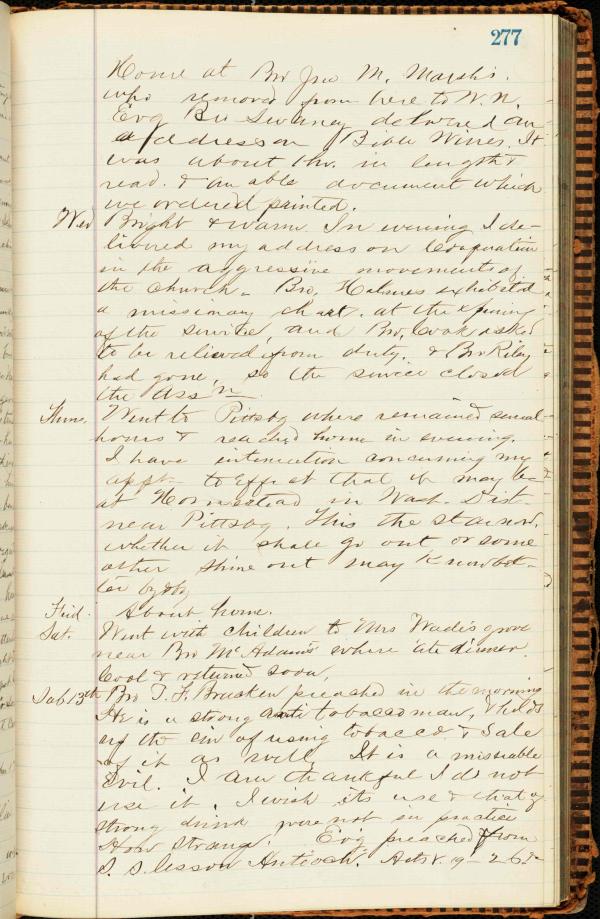 277
Home at Bro Jno M. Marshs.
who removed from here to W. N.
Evg Bro Swaney delivered an
address on Bible Wines. It
was about 1 hr. in length &
read. & an able document which
we ordered printed.
Wed Bright & warm. In evening I de-
livered my address on Cooperation
in the aggressive movements of
the Church. Bro, Holmes exhibited
a missionary chart. at the opening
of the service, and Bro, Cook asked
to be relieved from duty. & Bro Riley
had gone, so the service closed
the Ass'n.
Thurs, Went to Pittsbg where remained several
hours & reached home in evening.
I have intimation concerning my
appt. to effect that it may be
at Homestead in Wash. Dist
near Pittsbg. This the star now.
whether it shall go out or some
other shine out may know bet-
ter by & by
Frid. About home.
Sat. Went with children to Mrs Wade's grove
near Bro McAdams where ate dinner.
Cool & returned soon,
Sab 13th Bro T. F. Bracken preached in the morning
He is a strong anti tobacco man, & holds
up the sin of using tobacco & sale
of it as well. It is a miserable
evil. I am thankful I do not
use it. I wish its use & that of
strong drink were not in practice
How strange! Ev'g preached from
S. S. lesson Antioch. Acts 19-26.